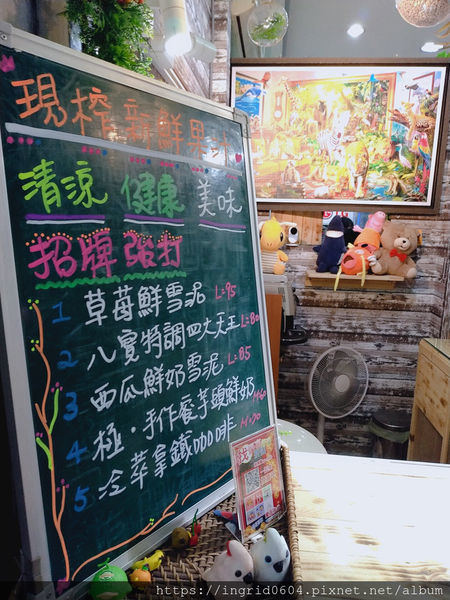 現榨新鮮果汁
清涼 健康 美味
招牌強打
1 草莓鮮雪泥 L=95
2 八寶特調四大天王 L=80
3 西瓜鮮奶雪泥 L=85
4 極·手作蜜芋頭鮮奶 M=60
5 冷萃拿鐵咖啡 M=70
https://ingrid0604.pixnet.net/album